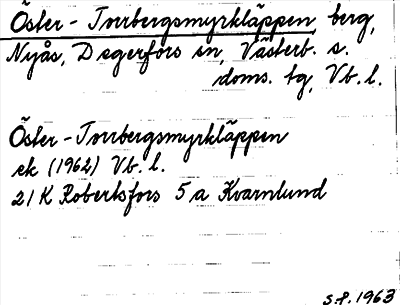 Öster-Torrbergsmyrkläppen, berg,
Nyås, Degerfors sn, Västerb. s.
doms. tg, Vb. l.
Öster-Torrbergsmyrkläppen
ek (1962) Vb. l.
21 K Robertsfors 5 a Kvarnlund
S.P. 1963